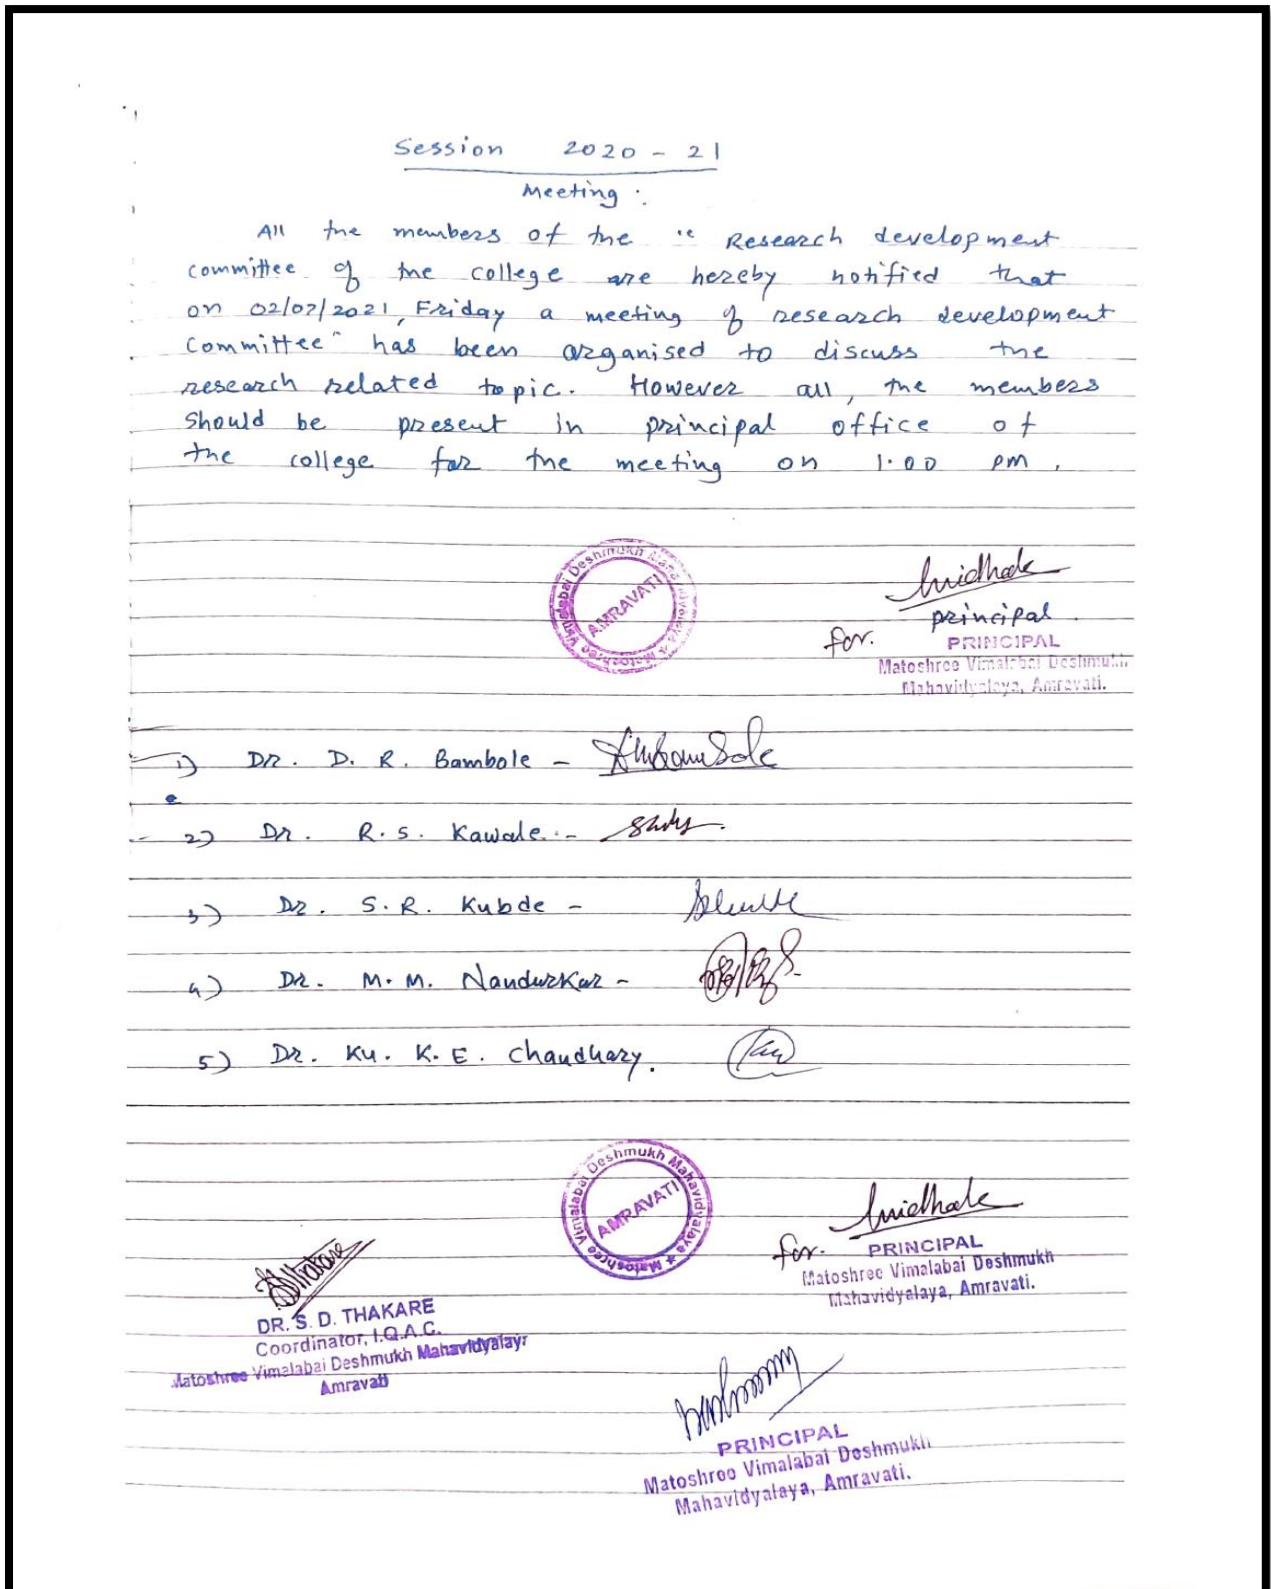 Session 2020 - 21
Meeting :
All the members of the " Research development
committee of the college are hereby notified that
on 02/07/2021, Friday a meeting of research development
Committee" has been organised to discuss the
research related topic. However all, the members
should be present in principal office of
the college for the meeting on 1.00 pm.
Matoshree Vimalabai Deshmukh Mahavidyalaya
AMRAVATI
principal
for. PRINCIPAL
Matoshree Vimalabai Deshmukh
Mahavidyalaya, Amravati.
1) Dr. D. R. Bambole -
2) Dr. R.S. Kawale. -
3) Dr. S.R. Kubde -
4) Dr. M.M. Nandurkar -
5) Dr. Ku. K.E. Chaudhary.
Matoshree Vimalabai Deshmukh Mahavidyalaya ★
AMRAVATI
for. PRINCIPAL
Matoshree Vimalabai Deshmukh
Mahavidyalaya, Amravati.
DR. S. D. THAKARE
Coordinator, I.Q.A.C.
Matoshree Vimalabai Deshmukh Mahavidyalay
Amravati
PRINCIPAL
Matoshree Vimalabai Deshmukh
Mahavidyalaya, Amravati.